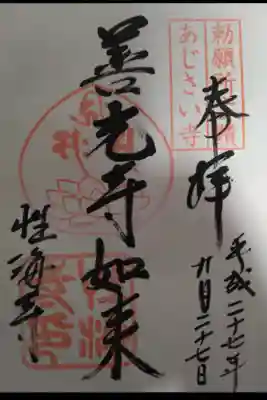 勅願所
あじさい寺
奉拝
平成二十七年
九月二十七日
善光寺如来
性海寺